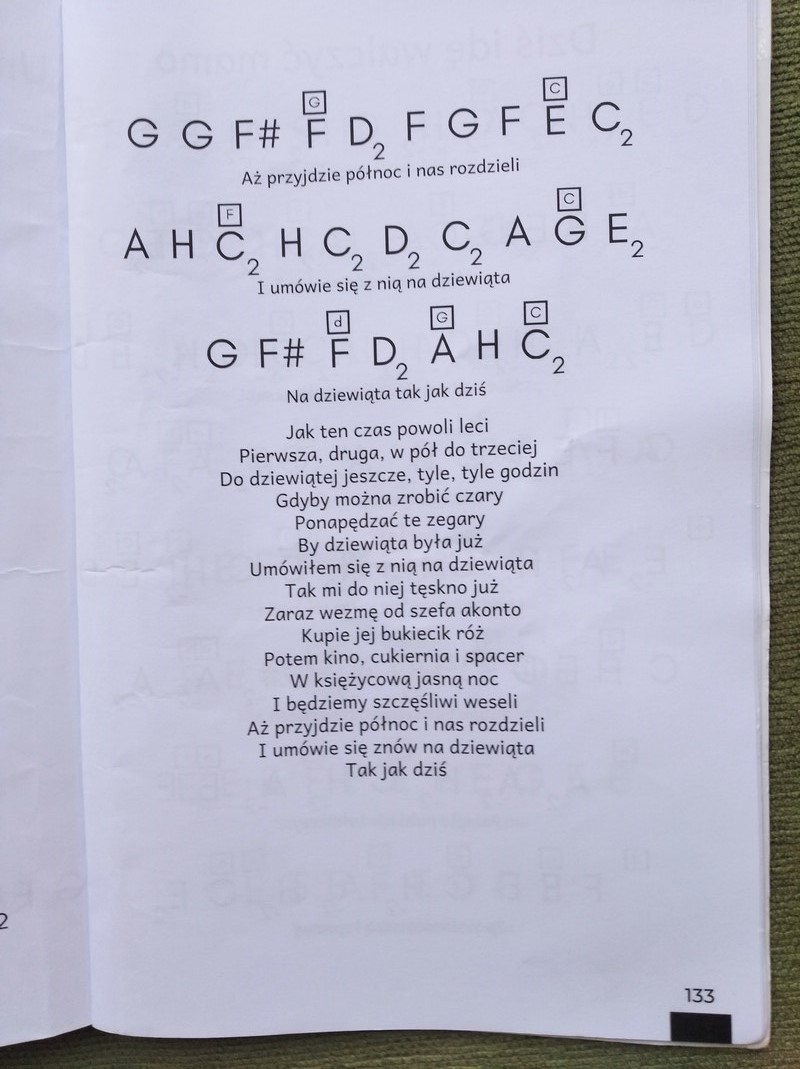 G C
G G F# F D2 F G F E C2
Aż przyjdzie północ i nas rozdzieli
F C
A H C2 H C2 D2 C2 A G E2
I umówie się z nią na dziewiąta
d G C
G F# F D2 A H C2
Na dziewiąta tak jak dziś
Jak ten czas powoli leci
Pierwsza, druga, w pół do trzeciej
Do dziewiątej jeszcze, tyle, tyle godzin
Gdyby można zrobić czary
Ponapędzać te zegary
By dziewiąta była już
Umówiłem się z nią na dziewiąta
Tak mi do niej tęskno już
Zaraz wezmę od szefa akonto
Kupie jej bukiecik róż
Potem kino, cukiernia i spacer
W księżycową jasną noc
I będziemy szczęśliwi weseli
Aż przyjdzie północ i nas rozdzieli
I umówie się znów na dziewiąta
Tak jak dziś
2
133